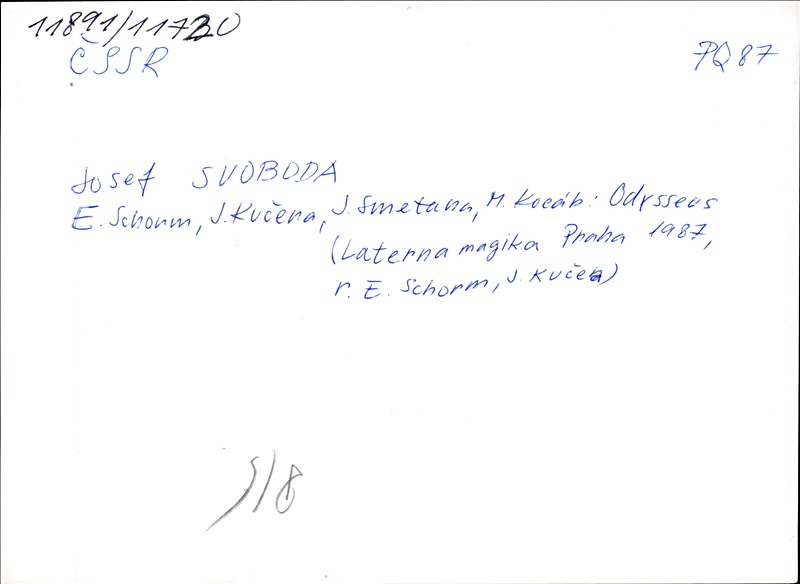 11891/11720
ČSSR
PQ 87
Josef SVOBODA
E. Schorm, J. Kučera, J. Smetana, M. Kocáb: Odysseus
(Laterna magika Praha 1987,
r. E. Schorm, J. Kučera)
5/8